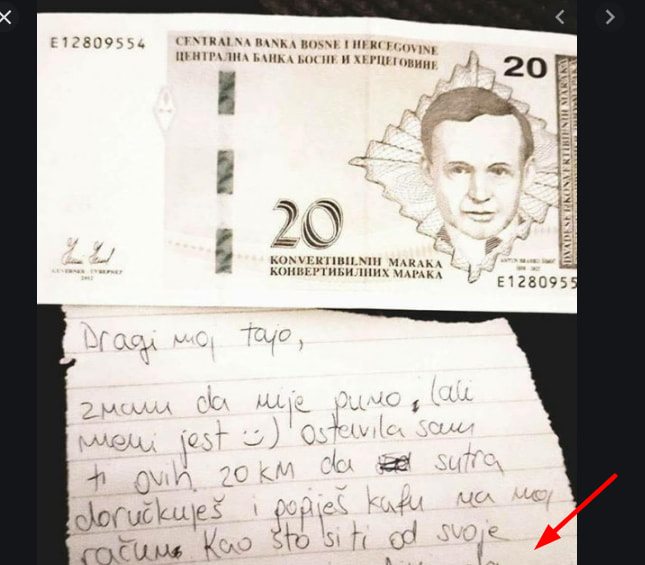 E12809554
CENTRALNA BANKA BOSNE I HERCEGOVINE
ЦЕНТРАЛНА БАНКА БОСНЕ И ХЕРЦЕГОВИНЕ
20
DVADESET KONVERTIBILNIH MARAKA
20
KONVERTIBILNIH MARAKA
КОНВЕРТИБИЛНИХ МАРАКА
GUVERNER - ГУВЕРНЕР
2012
E1280955
Dragi moj tajo,
znam da nije puno, (ali
meni jest :)) ostavila sam
ti ovih 20 KM da sutra
doručkuješ i popiješ kafu na moj
račun. Kao što si ti od svoje